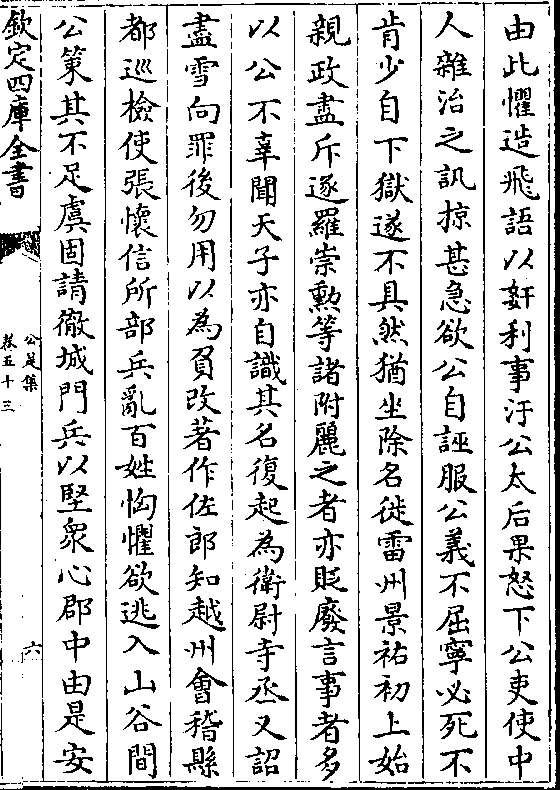 由此懼造飛語以奸利事汙公太后果怒下公吏使中
人雜治之訊掠甚急欲公自誣服公義不屈寧必死不
肯少自下獄遂不具然猶坐除名徙雷州景祐初上始
親政盡斥逐羅崇勲等諸附麗之者亦貶廢言事者多
以公不辜聞天子亦自識其名復起為衛尉寺丞又詔
盡雪向罪後勿用以為負改著作佐郎知越州會稽縣
都巡檢使張懷信所部兵亂百姓恟懼欲逃入山谷間
公策其不足虞固請徹城門兵以堅衆心郡中由是安
欽定四庫全書
公是集
卷五十三
六